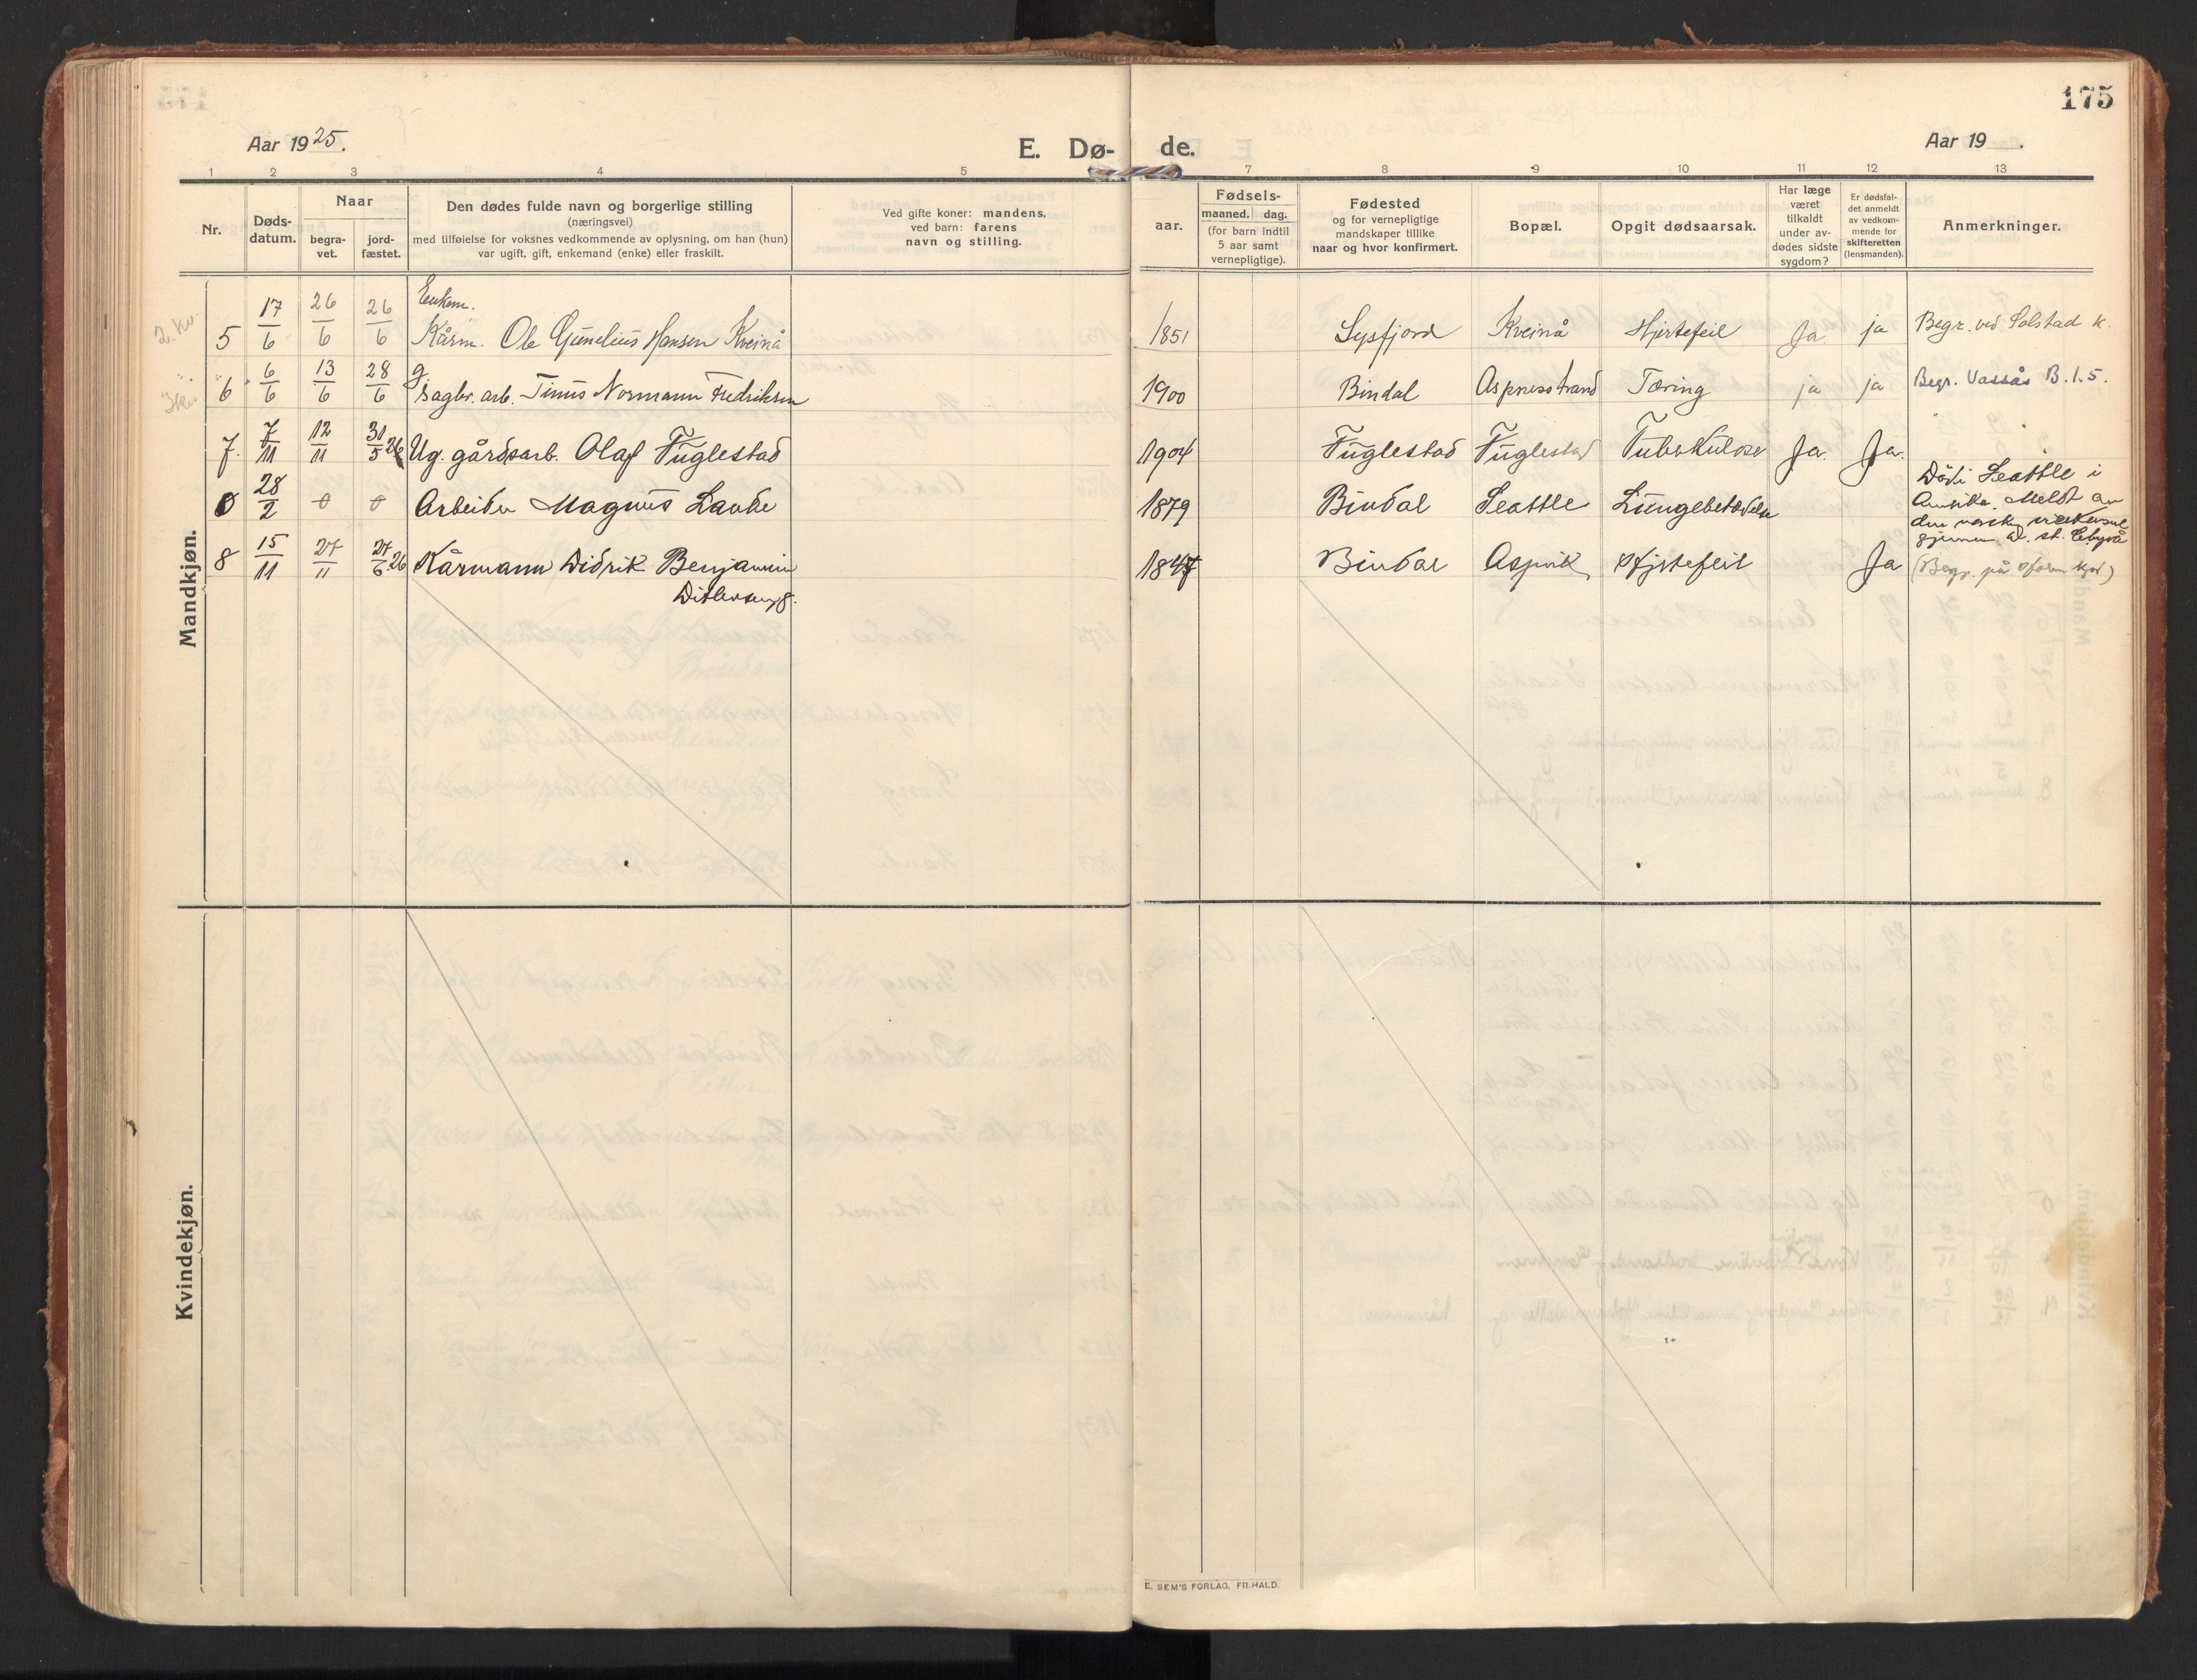 175
Aar 1925.
E. Dø-
de.
Aar 19   .
1 2 3 4 5 7 8 9 10 11 12 13
Nr.
Døds-
datum.
Naar
begra-
vet.
jord-
fæstet.
Den dødes fulde navn og borgerlige stilling
(næringsvei)
med tilføielse for voksnes vedkommende av oplysning, om han (hun)
var ugift, gift, enkemand (enke) eller fraskilt.
Ved gifte koner: mandens,
ved barn: farens
navn og stilling.
aar.
Fødsels-
maaned. dag.
(for barn indtil
5 aar samt
vernepligtige).
Fødested
og for vernepligtige
mandskaper tillike
naar og hvor konfirmert.
Bopæl.
Opgit dødsaarsak.
Har læge
været
tilkaldt
under av-
dødes sidste
sygdom?
Er dødsfal-
det anmeldt
av vedkom-
mende for
skifteretten
(lensmanden).
Anmerkninger.
Mandkjøn.
Enkem.
5 17/6 26/6 26/6 Kårm. Ole Gunelius Hansen Kveinå 1851 Kveinå Hjertefeil Ja ja Begr. ved Solstad k.
g.
6 6/6 13/6 28/6 sagbr. arb. Tinus Normann Fredriksen 1900 Bindal Aspnesstrand Tæring ja ja Begr. Vassås B.1.5.
7. 7/11 12/11 31/5 26 Ug. gårdsarb. Olaf Fuglestad 1904 Fuglestad Fuglestad Tuberkulose Ja. Ja.
0 28/2 0 0 Arbeider Magnus Lande 1879 Bindal Seattle Lungebetændelse
Død i Seattle i
Amerika. Meldt av
den norske
8 15/11 27/11 27/6 26 Kårmann Didrik Benjamin 1847 Bindal Aspvik Hjertefeil Ja
Ditlevsen g.
Kvindekjøn.
E. SEM'S FORLAG, FR.HALD.